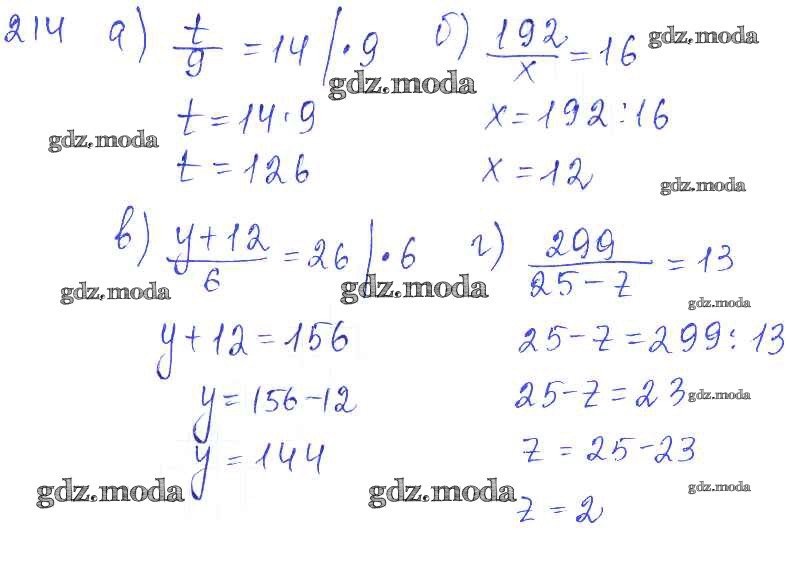 214 а) t/9 = 14 | · 9 б) 192/x = 16
gdz.moda
gdz.moda
t = 14 · 9 x = 192 : 16
gdz.moda
t = 126 x = 12
gdz.moda
в) y + 12/6 = 26 | · 6 г) 299/25 - z = 13
gdz.moda gdz.moda
gdz.moda
y + 12 = 156 25 - z = 299 : 13
y = 156 - 12 25 - z = 23
gdz.moda
y = 144 z = 25 - 23
gdz.moda gdz.moda gdz.moda
z = 2